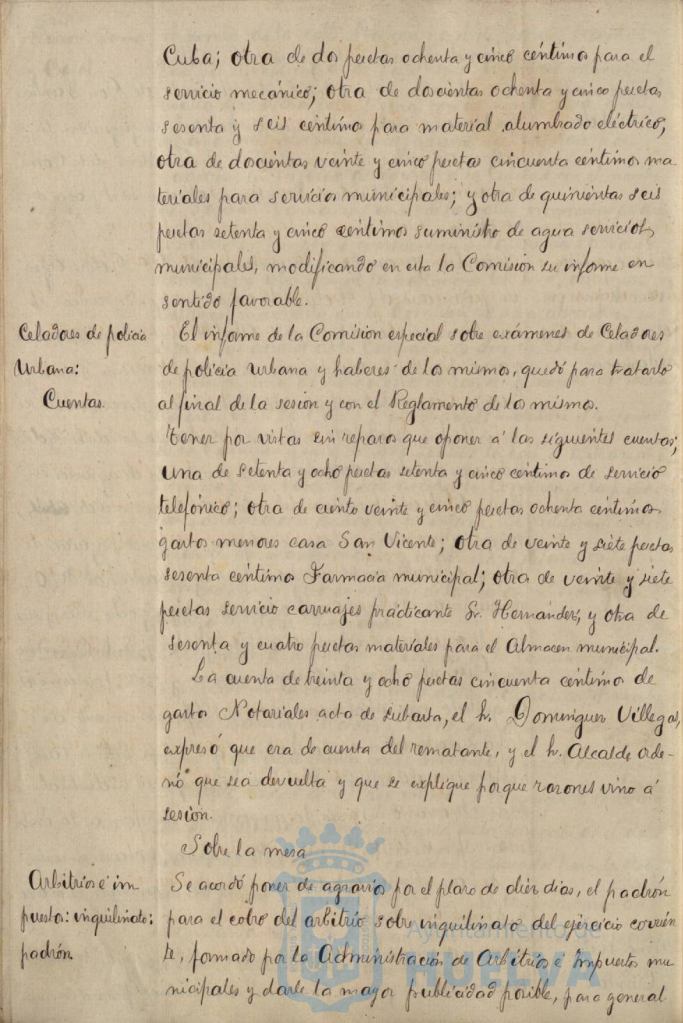 Cuba; otra de dos pesetas ochenta y cinco céntimos para el
servicio mecánico; otra de doscientas ochenta y cinco pesetas
sesenta y seis centimos para material alumbrado eléctrico,
otra de docientas veinte y cinco pesetas cincuenta céntimos ma
teriales para servicios municipales; y otra de quinientas seis
pesetas setenta y cinco centimos suministro de agua servicios
municipales, modificando en esta la Comision su informe en
sentido favorable.
Celadores de policia
Urbana:
Cuentas.
El informe de la Comision especial sobre exámenes de Celadores
de policia urbana y haberes de los mismos, quedó para tratarlo
al final de la sesion y con el Reglamento de los mismos.
Tener por vistas sin reparo que oponer á las siguientes cuentas;
una de setenta y ocho pesetas setenta y cinco centimos de servicio
telefónico; otra de ciento veinte y cinco pesetas ochenta centimos
gastos menores casa San Vicente; otra de veinte y siete pesetas
sesenta centimos Farmacia municipal; otra de veinte y siete
pesetas servicio carruajes practicante Sr. Hernandez, y otra de
sesenta y cuatro pesetas materiales para el Almacen municipal.
La cuenta de treinta y ocho pesetas cincuenta centimos de
gastos Notariales acta de subasta, el Sr. Dominguez Villegas,
expresó que era de cuenta del rematante, y el Sr. Alcalde orde-
nó que sea devuelta y que se explique porque razones vino á
sesion.
Sobre la mesa
Arbitrios é im
puestos: inquilinato:
padrón
Se acordó poner de agravios por el plazo de diez dias, el padrón
para el cobro del arbitrio sobre inquilinato del ejercicio corrien
te, formado por la Administración de Arbitrios é Impuestos mu
nicipales y darle la mayor publicidad posible, para general
Ayuntamiento de
HUELVA